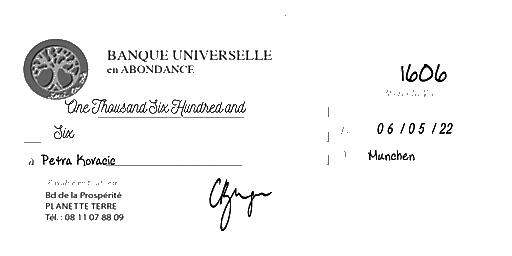 BANQUE UNIVERSELLE
en ABONDANCE
1606
One Thousand Six Hundred and
Six
06/05/22
à Petra Kovacic
Munchen
Bd de la Prospérité
PLANETTE TERRE
Tél. : 08 11 07 88 09